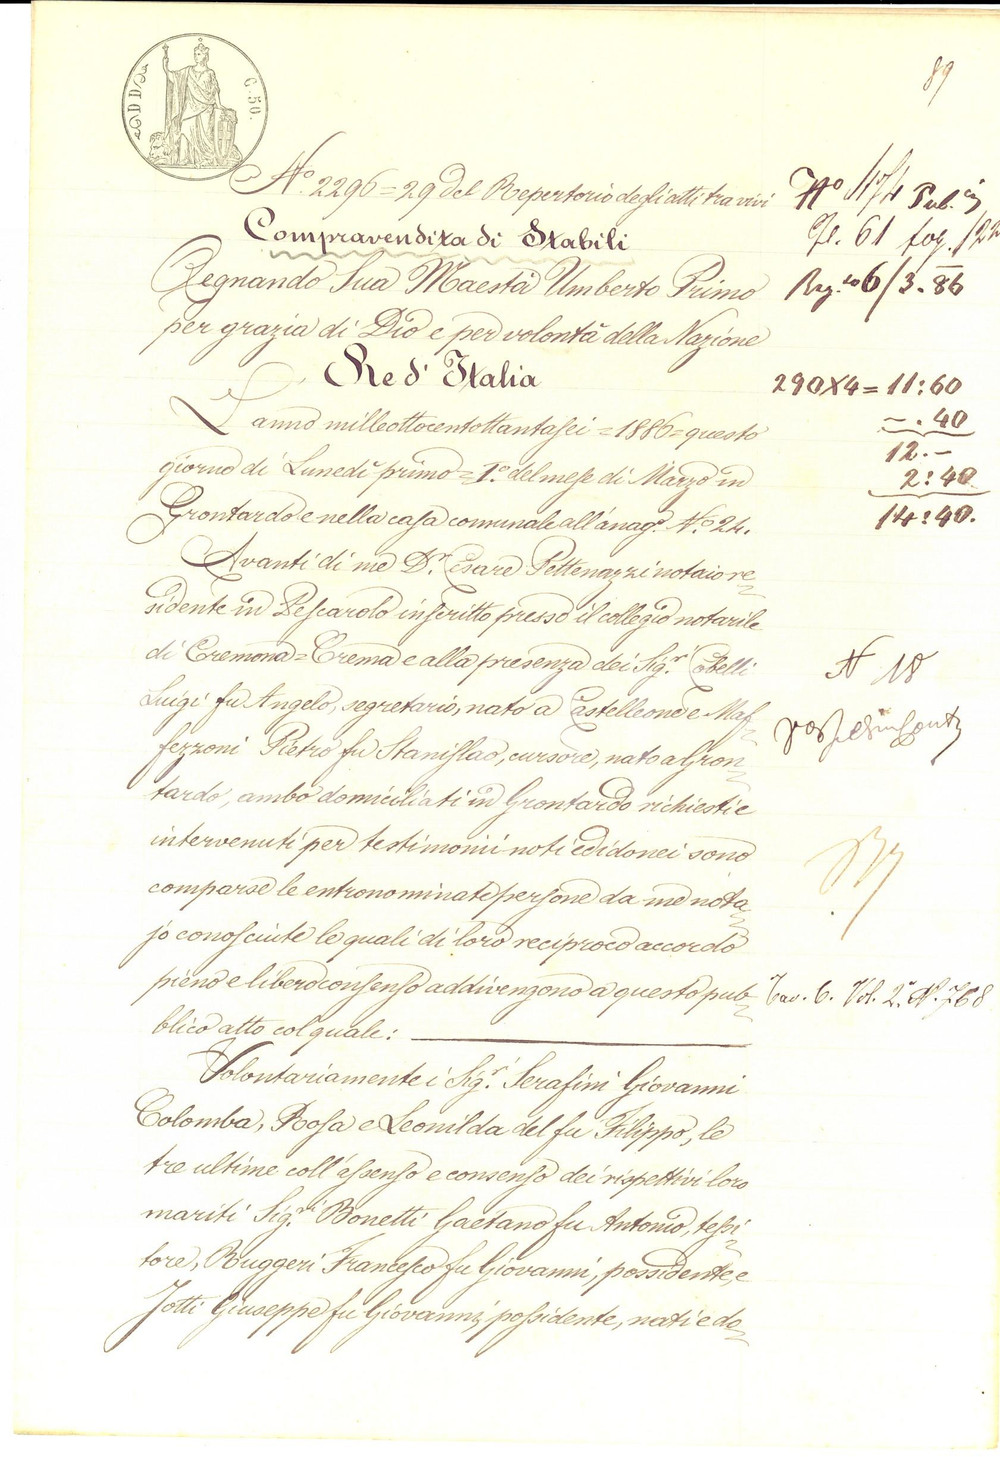 89
C. 50.
N.° 2296 = 29 del Repertorio degli atti tra vivi
N° 1174 Pub.ci
Compravendita di Stabili
Vl. 61 fog. 122
Regnando Sua Maestà Umberto Primo
Reg.to 6/3.86
per grazia di Dio e per volontà della Nazione
Re d'Italia
290X4 = 11:60
-.40
12.-
2:40
14:40.
L'anno milleottocentottantasei = 1886 = questo
giorno di Lunedì primo = 1.° del mese di Marzo in
Grontardo e nella casa comunale all'anag.° N.° 24.
Avanti di me D.r Cesare Pettenazzi notaio re
sidente in Pescarolo inscritto presso il collegio notarile
di Cremona = Crema e alla presenza dei Sig.ri Cabelli
N 18
Luigi fu Angelo, segretario, nato a Castelleone e Maf
fezzoni Pietro fu Stanislao, cursore, nato a Gron
tardo, ambo domiciliati in Grontardo richiesti e
intervenuti per testimonii noti ed idonei sono
comparse le entronominate persone da me nota
jo conosciute le quali di loro reciproco accordo
pieno e libero consenso addivengono a questo pub
Tav. 6. Vol. 2.° N. 768
blico atto col quale:
Volontariamente i Sig.ri Serafini Giovanni
Colomba, Rosa e Leonilda del fu Filippo, le
tre ultime coll'assenso e consenso dei rispettivi loro
mariti Sig.ri Bonetti Gaetano fu Antonio, tessi
tore, Ruggeri Francesco fu Giovanni, possidente, e
Jotti Giuseppe fu Giovanni, possidente, nati e do